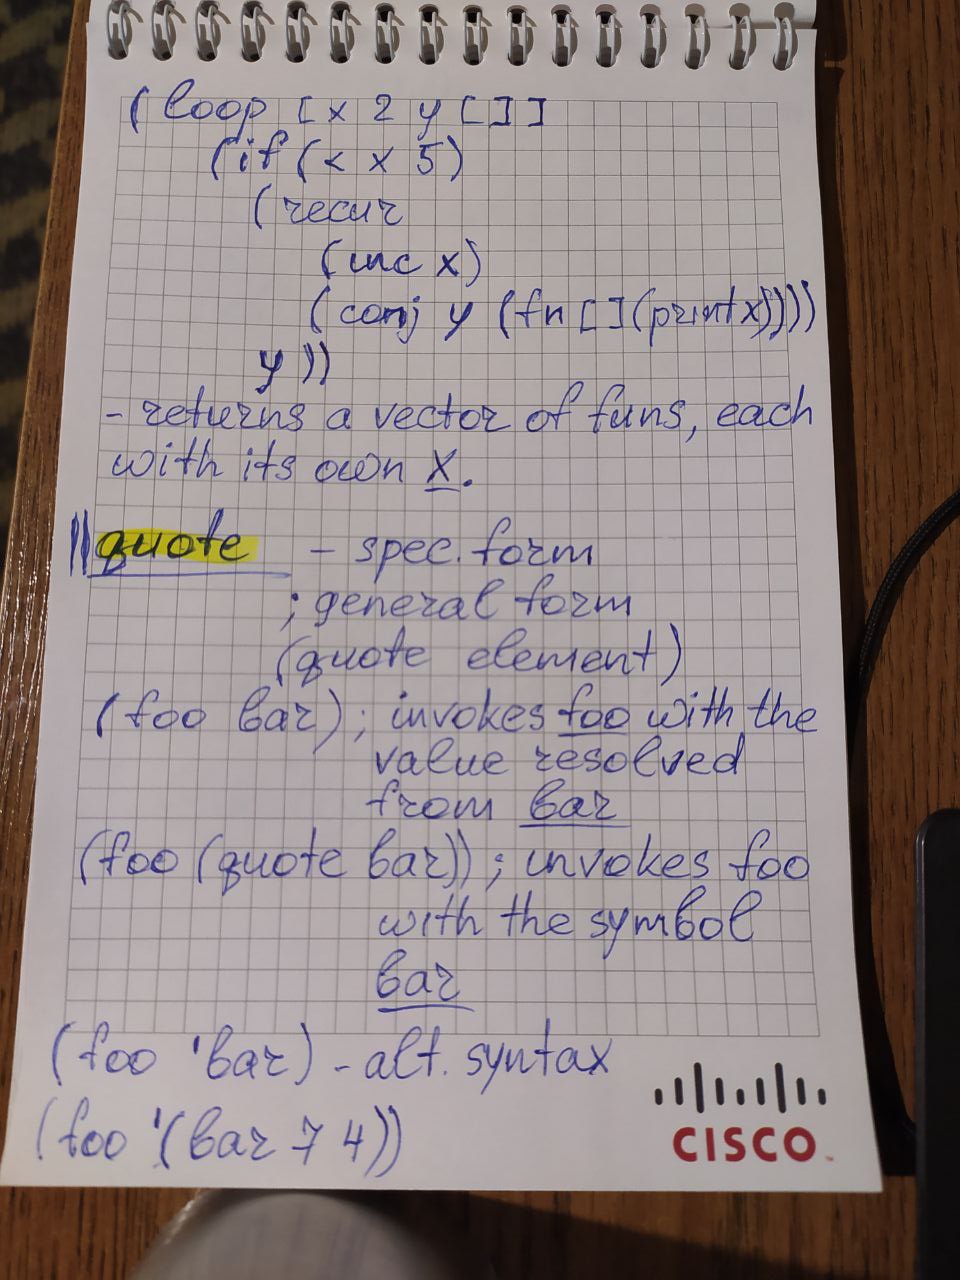 (loop [x 2 y []]
(if (< x 5)
(recur
(inc x)
(conj y (fn [] (print x))))
y))
- returns a vector of funs, each
with its own x.
quote - spec. form
; general form
(quote element)
(foo bar) ; invokes foo with the
value resolved
from bar
(foo (quote bar)) ; invokes foo
with the symbol
bar
(foo 'bar) - alt. syntax
(foo '(bar 7 4))
CISCO